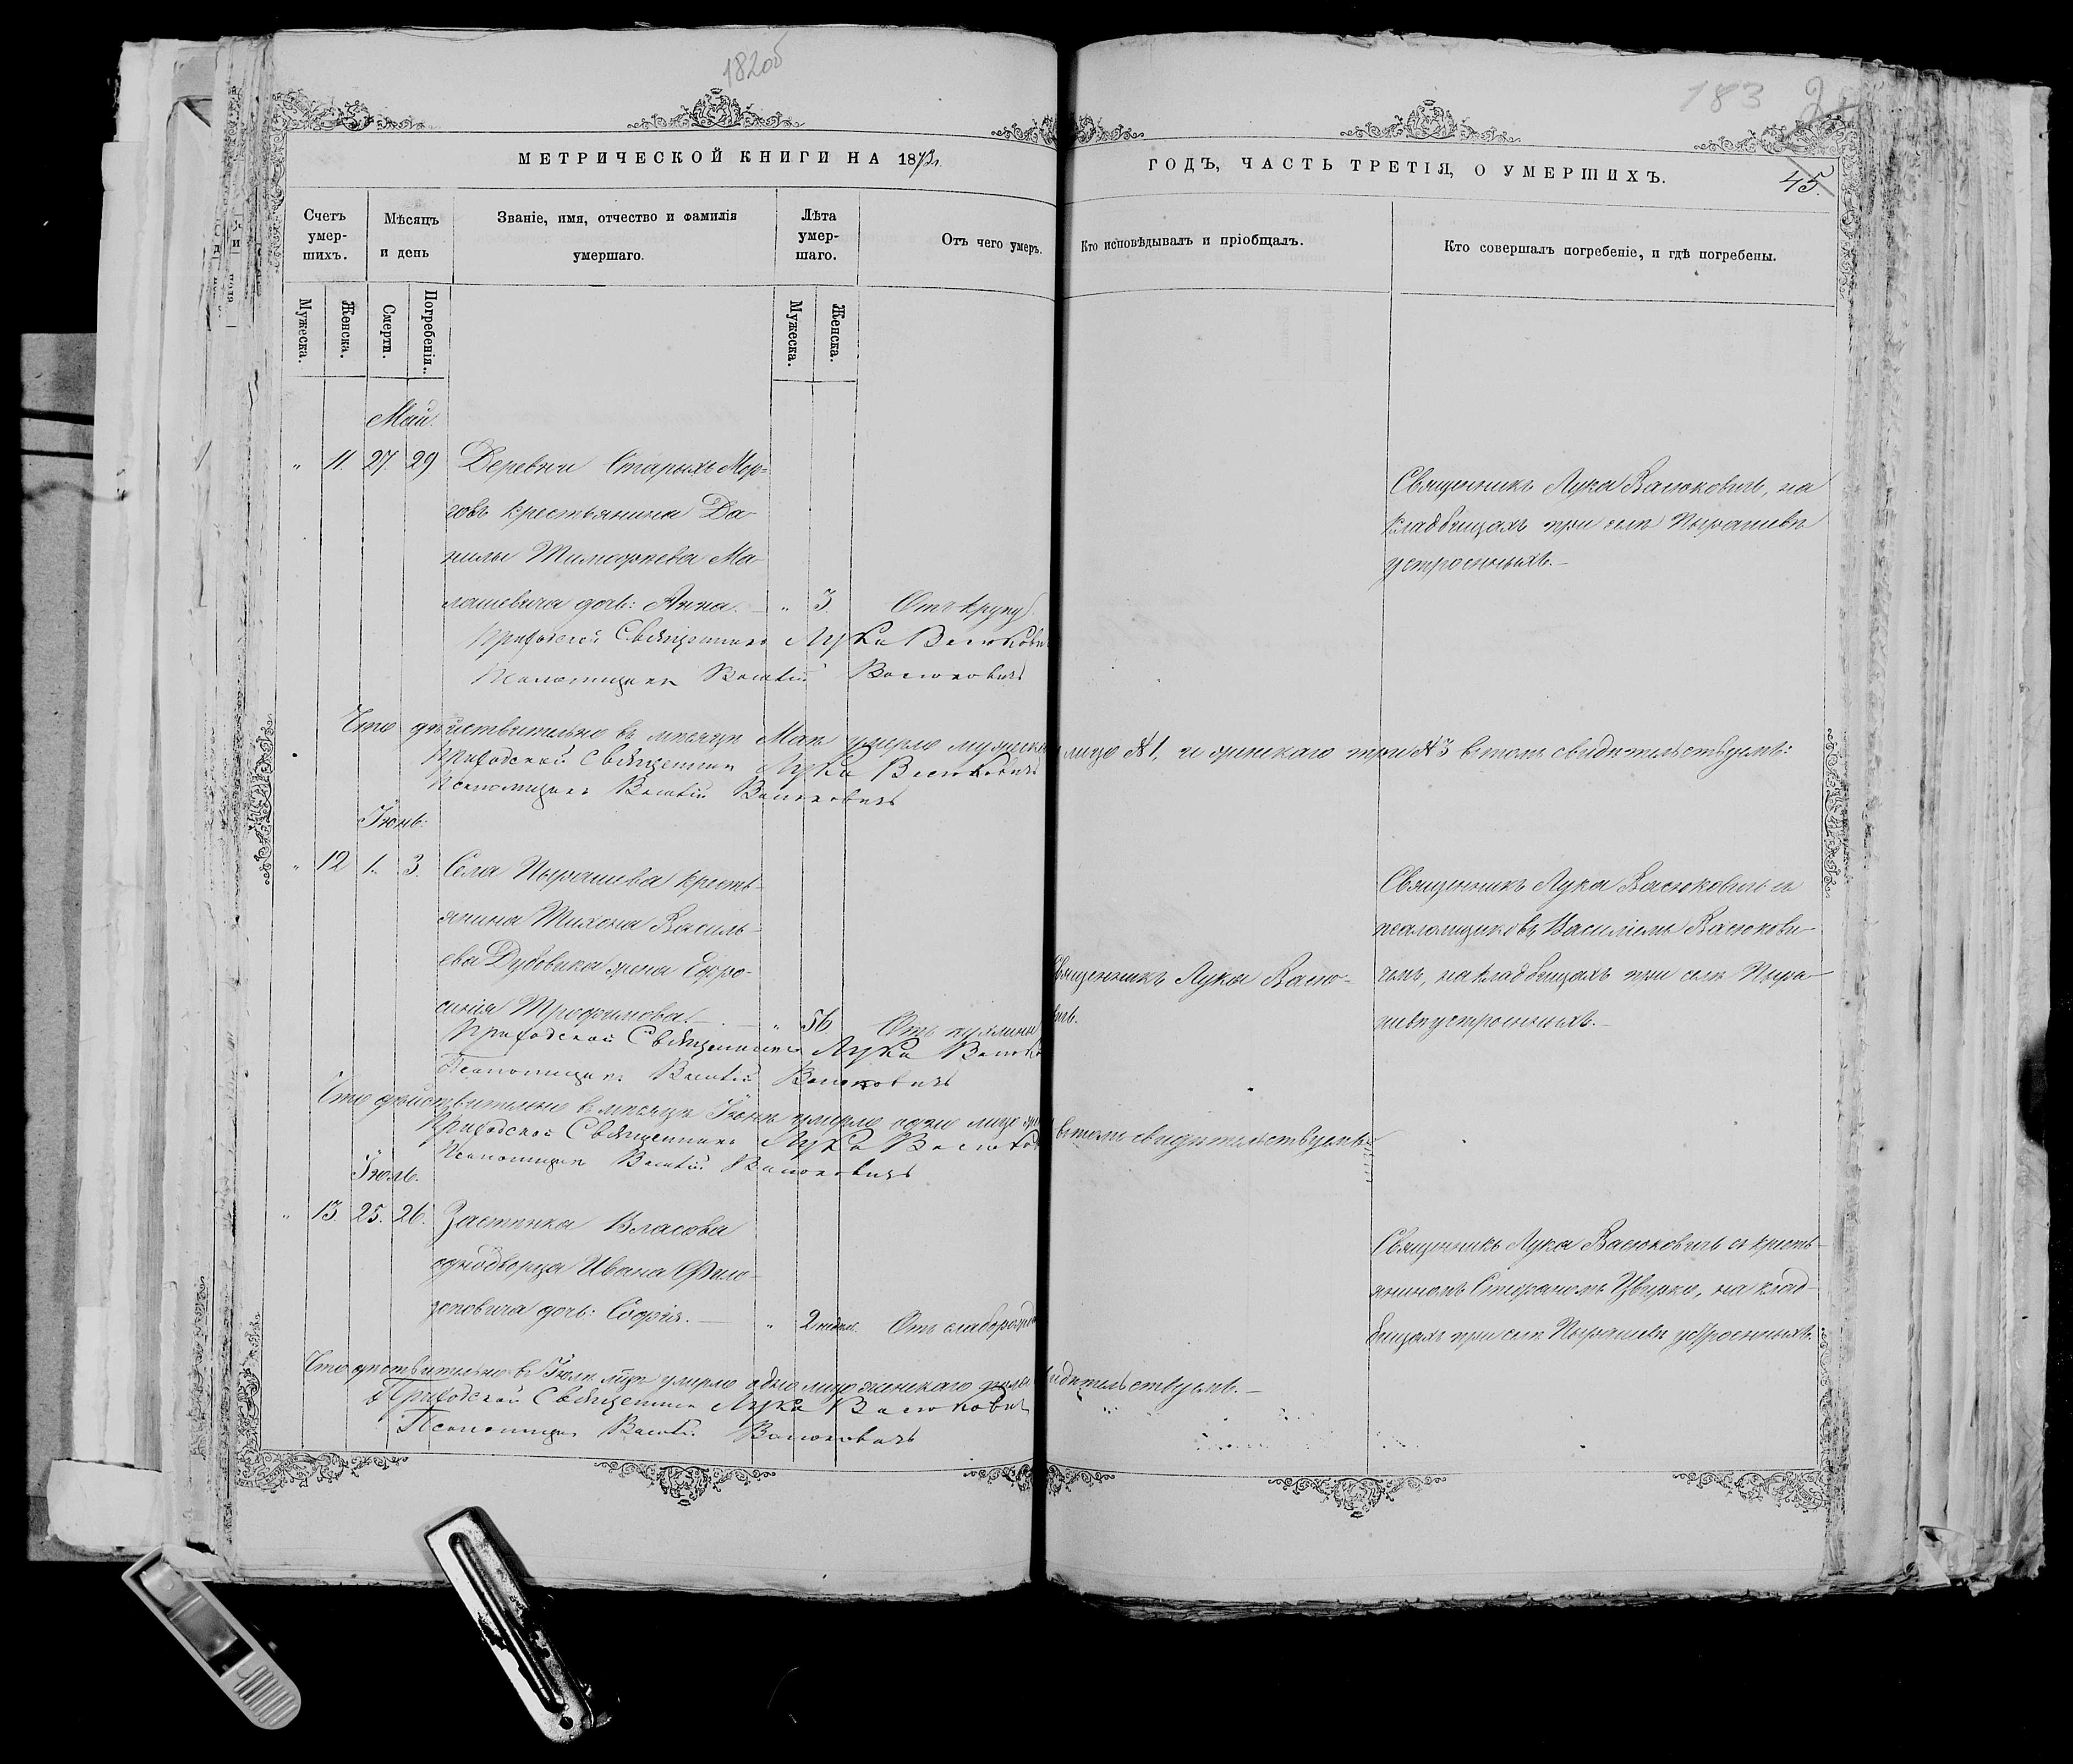 182об
183
МЕТРИЧЕСКОЙ КНИГИ НА 1872
ГОДЪ, ЧАСТЬ ТРЕТІЯ, О УМЕРШИХЪ.
45.
Счетъ умер-шихъ.
Мѣсяцъ и день
Званіе, имя, отчество и фамилія умершаго.
Лѣта умер-шаго.
Отъ чего умеръ.
Кто исповѣдывалъ и пріобщалъ.
Кто совершалъ погребеніе, и гдѣ погребены.
Мужеска.
Женска.
Смерти.
Погребенія.
Мужеска.
Женска.
Май.
" 11. 27. 29 Деревни Старыхъ Мор-
говъ крестьянина Да-
нилы Тимофеева Ма-
лашевича дочь: Анна. — " 3. Отъ крупу.
Священникъ Лука Васюковичъ, на
кладбищахъ при селѣ Пырашевѣ
устроенныхъ. —
Приходской Священникъ Лука Васюкови
Псаломщикъ Василій Васюковичъ
Что дѣйствительно въ месяцѣ Маѣ умерло мужеска лице №1, и женскаго три №3 въ томъ свидѣтельствуемъ:
Приходской Священникъ Лука Васюковичъ
Псаломщикъ Василій Васюковичъ
Іюнь.
" 12 1. 3. Села Пырашева кресть-
янина Тихона Василь-
ева Дубовика жена Евфро-
синія Трофимова. — " 56 Отъ
Священникъ Лука Васю-
вичъ.
Священникъ Лука Васюковичъ съ
псаломщикомъ Василіемъ Васюкови-
чемъ, на кладбищахъ при селѣ Пыра-
шевѣ устроенныхъ. —
Приходской Священникъ Лука Васюко
Псаломщикъ Василій Васюковичъ
Что дѣйствительно въ месяцѣ Іюнѣ умерло одно лице въ томъ свидѣтельствуемъ:
Приходской Священникъ Лука Васюков
Псаломщикъ Василій Васюковичъ
Іюль.
" 13. 25. 26. Застѣнка Власова
однодворца Ивана Фило-
новича дочь: Софія. — " 2 недѣл. Отъ слаборожд
Священникъ Лука Васюковичъ съ кресть-
яниномъ Стефаномъ Цвирко, на клад-
бищахъ при селѣ Пырашевѣ устроенныхъ.
Что дѣствительно въ Іюлѣ мцѣ умерло одно лице женскаго пола свидѣтельствуемъ. —
Приходской Священникъ Лука Васюкович
Псаломщикъ Василій Васюковичъ